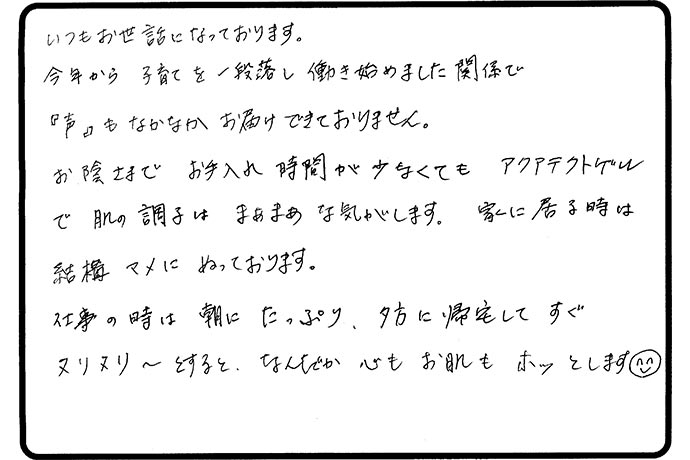 いつもお世話になっております。
今年から 子育てを一段落し 働き始めました関係で
『声』も なかなか お届けできておりません。
お陰さまで お手入れ 時間が 少なくても アクアテクトゲル
で 肌の調子は まぁまぁ な気がします。 家に居る時は
結構 マメに ぬっております。
仕事の時は 朝に たっぷり、夕方に帰宅して すぐ
ヌリヌリ〜とすると、なんだか 心も お肌も ホッとします